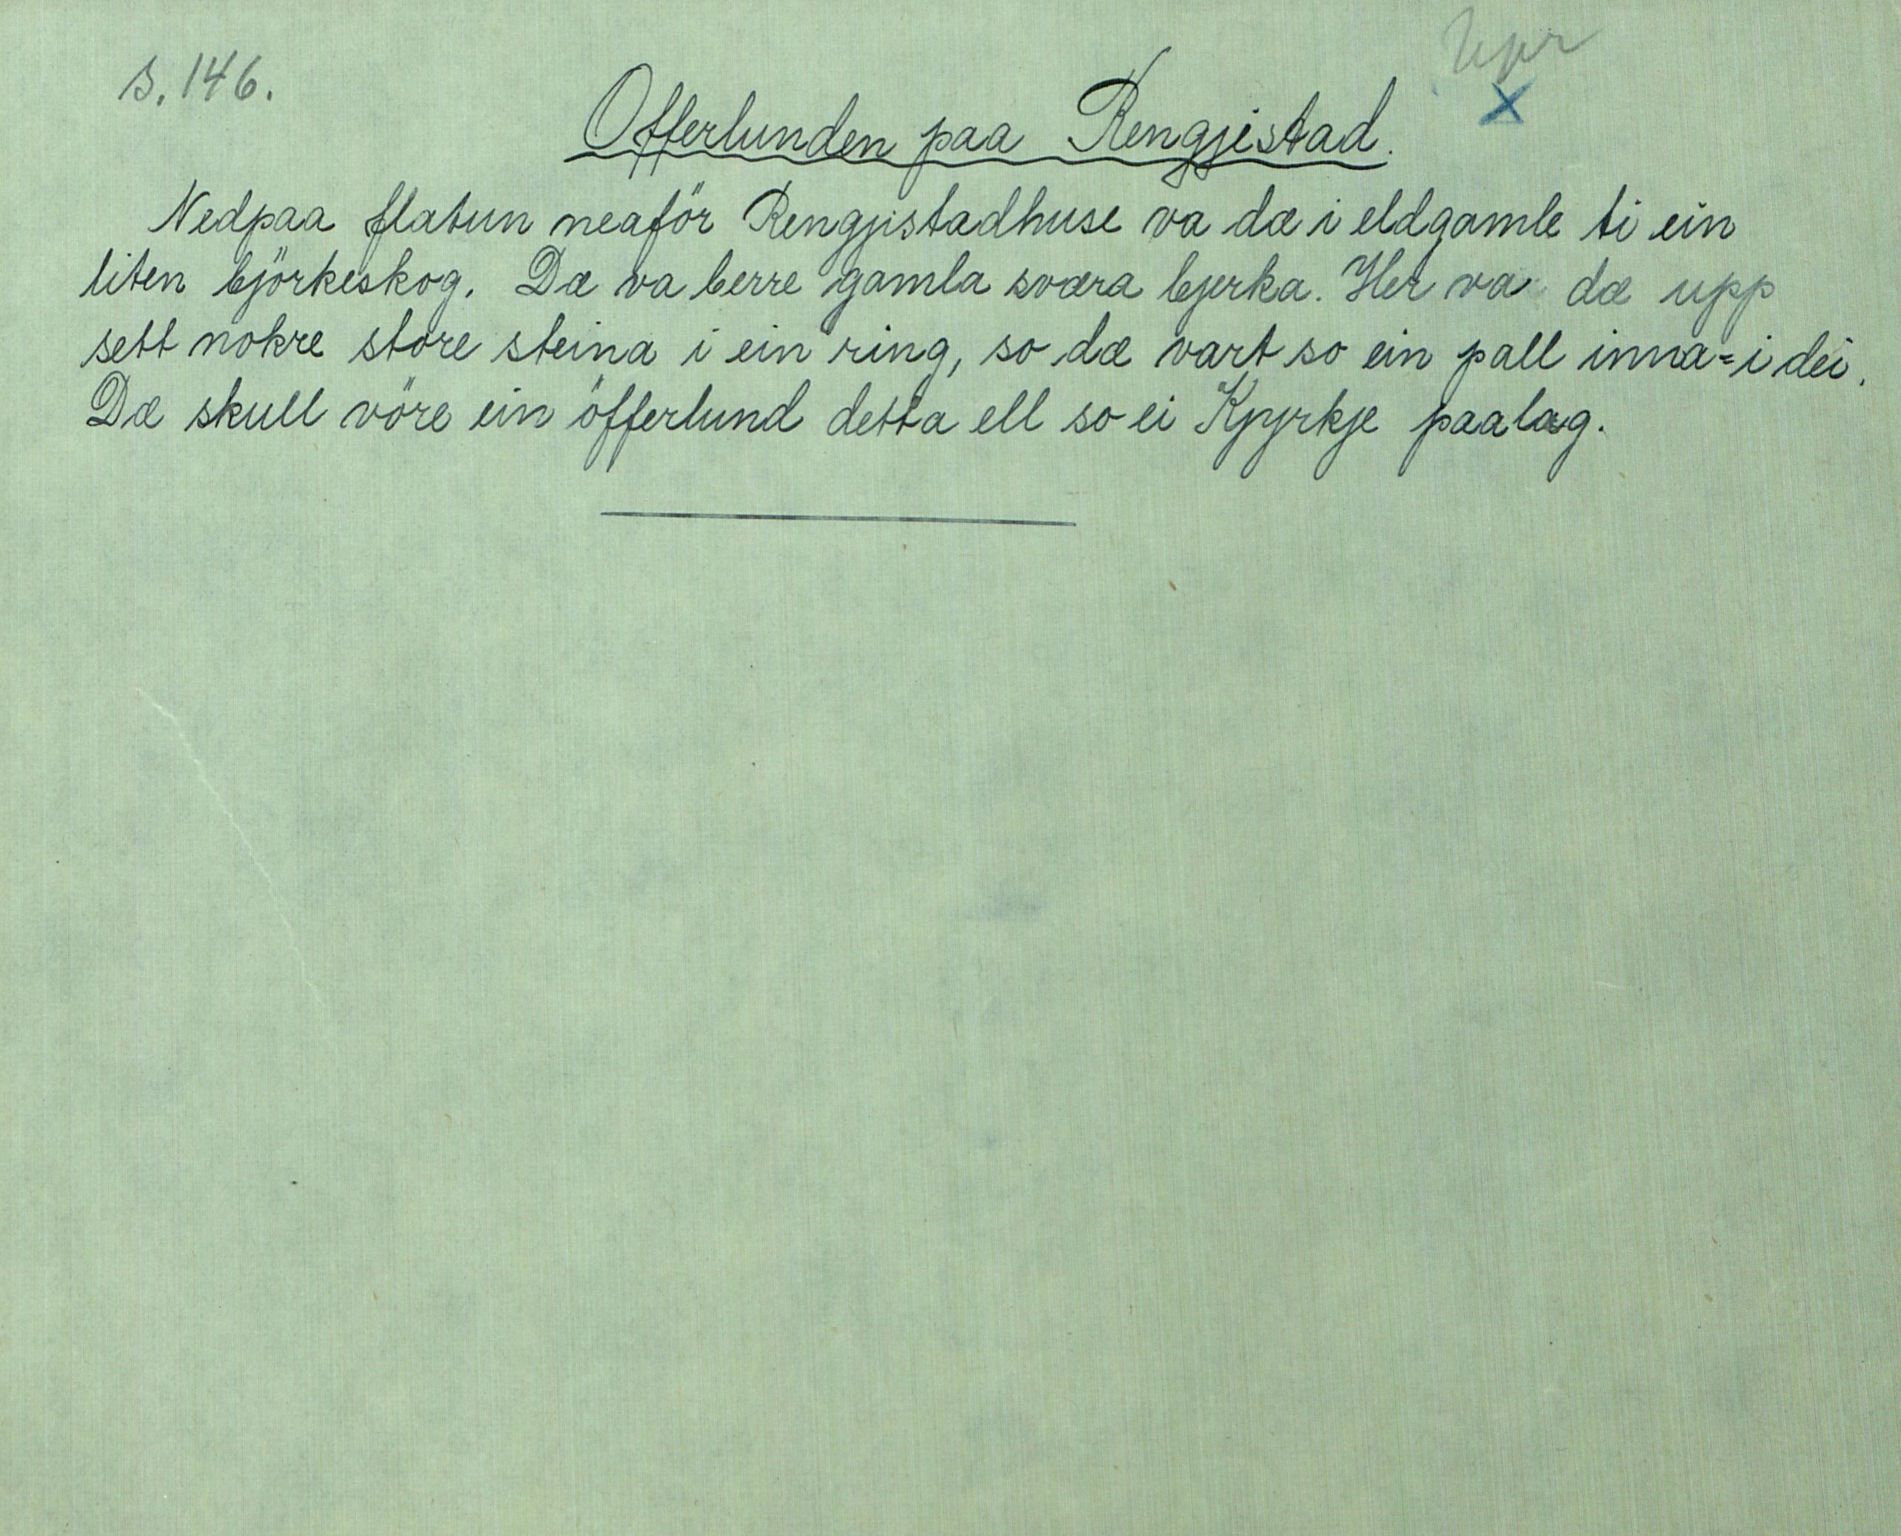 s. 146.
Offerlunden paa Rengjistad.
Nedpaa flatun neaför Rengjistadhuse va dæ i eldgamle ti ein
liten björkeskog. Dæ va berre gamla sværa bjerka. Her va dæ upp
sett nokre store steina i ein ring, so dæ vart so ein pall inna=i dei.
Dæ skull vöre ein öfferlund detta ell so ei Kjyrkje paalag.